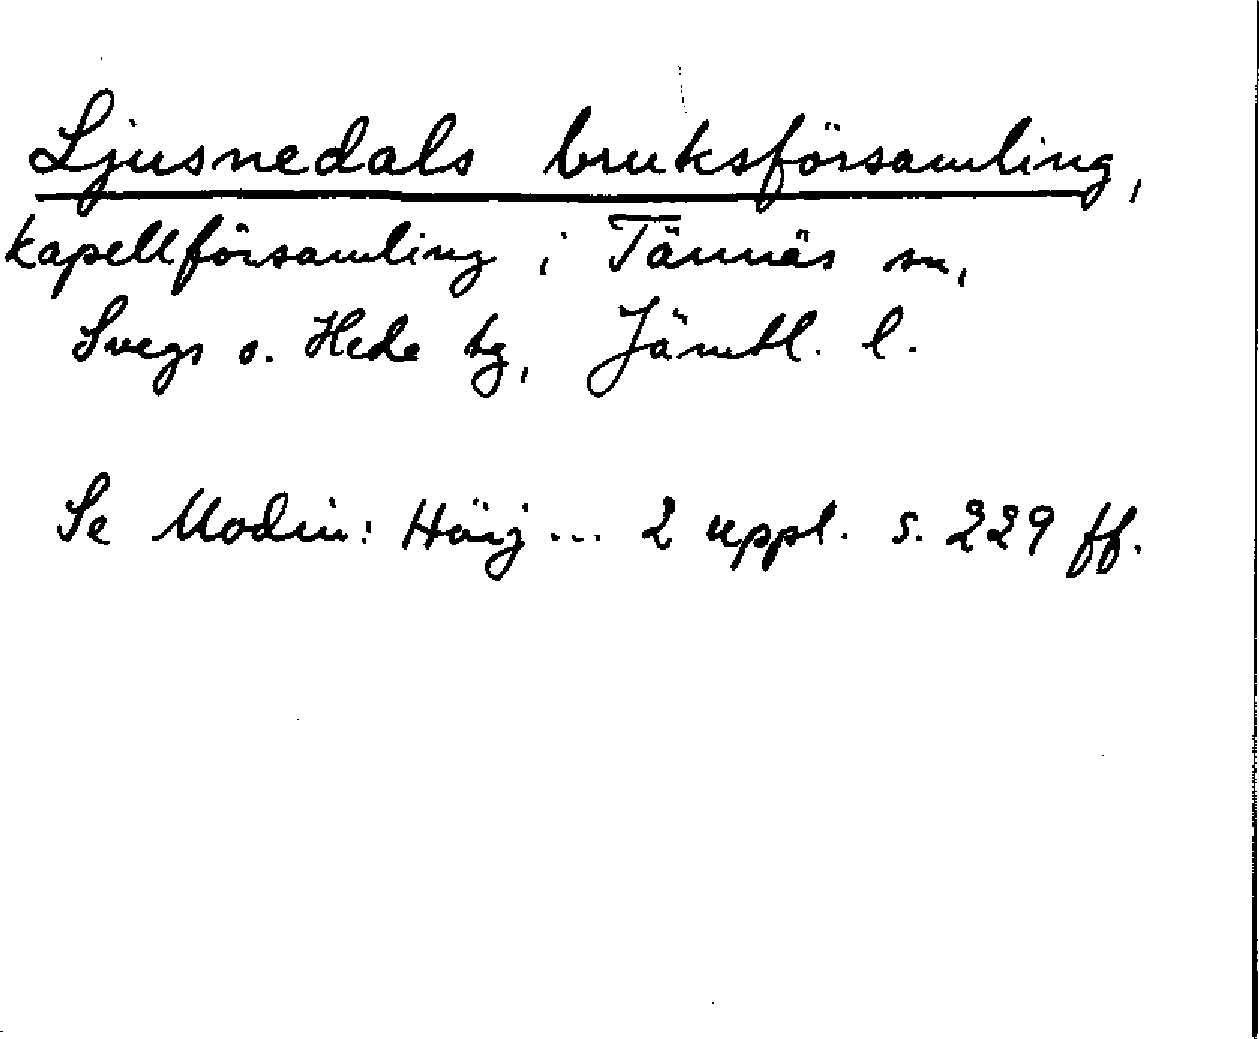 Ljusnedals bruksförsamling,
kapellförsamling i Tännäs sn,
Svegs o. Hede tg, Jämtl. l.
Se Modin: Härj... 2 uppl. s. 229 ff.